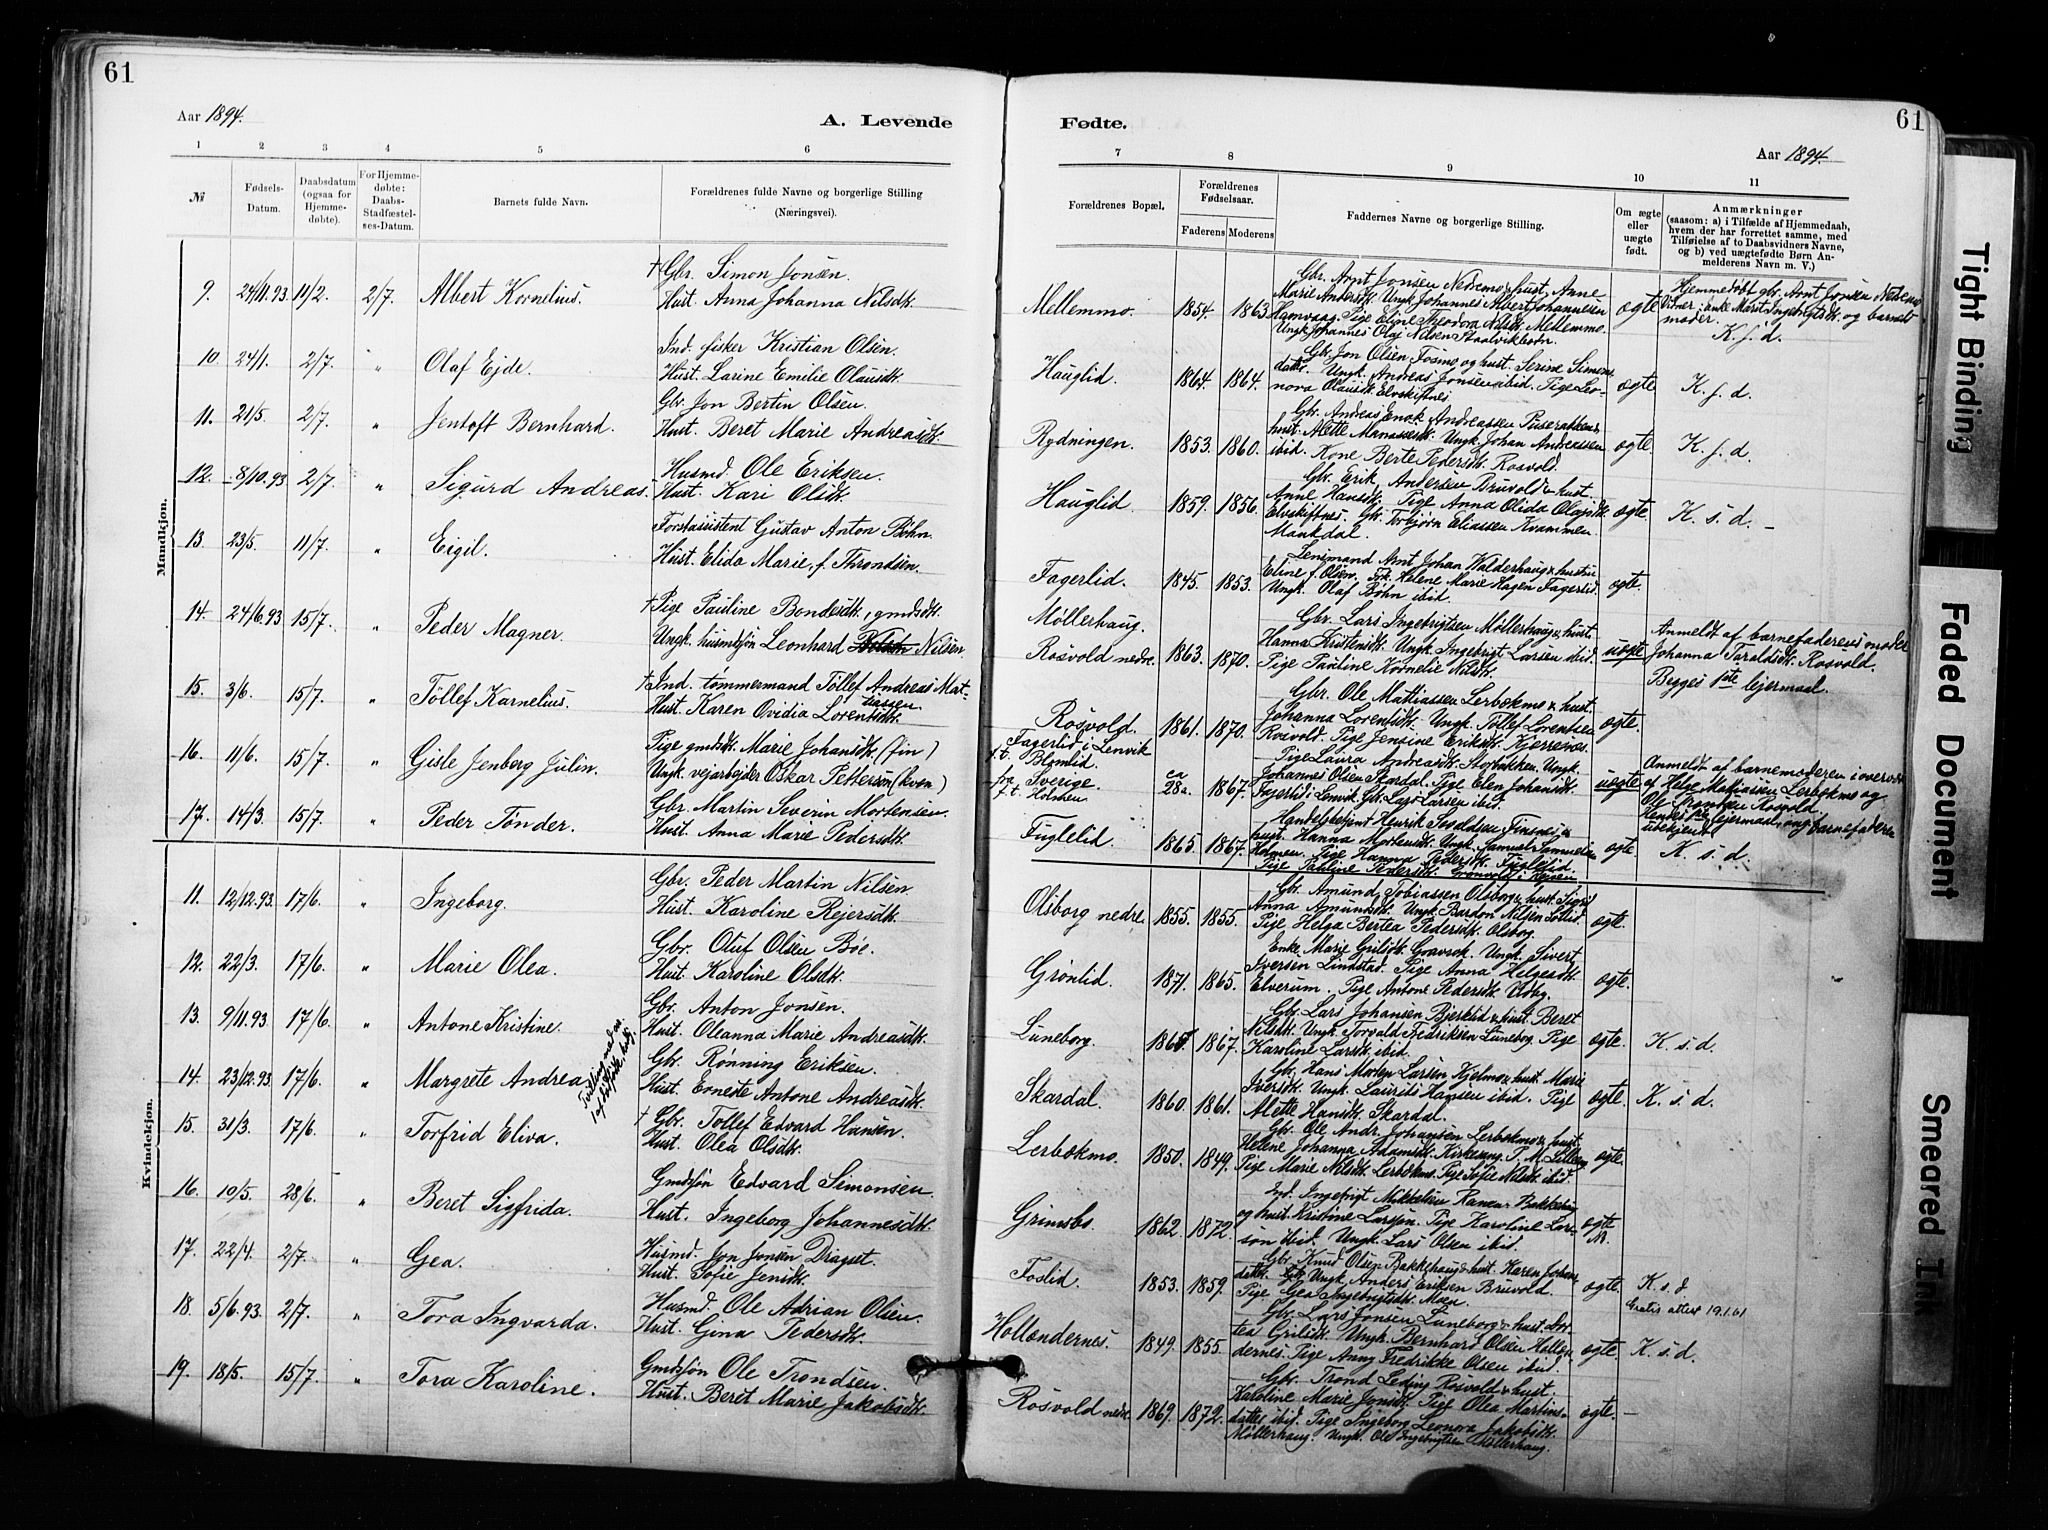 61
61
Aar 1894.
A. Levende
Fødte.
Aar 1894.
1 2 3 4 5 6
7 8 9 10 11
№
Fødsels-
Datum.
Daabsdatum
(ogsaa for
Hjemme-
døbte).
For Hjemme-
døbte:
Daabs-
Stadfæstel-
ses-Datum.
Barnets fulde Navn.
Forældrenes fulde Navne og borgerlige Stilling
(Næringsvei).
Forældrenes Bopæl.
Forældrenes
Fødselsaar.
Faderens Moderens
Faddernes Navne og borgerlige Stilling.
Om ægte
eller
uægte
født.
Anmærkninger
(saasom: a) i Tilfælde af Hjemmedaab,
hvem der har forrettet samme, med
Tilføielse af to Daabsvidners Navne,
og b) ved uægtefødte Børn An-
melderens Navn m. V.)
Mandkjøn.
9. 24/11.93 11/2. 2/7. Albert Kornelius.
+ Gbr. Simon Jonsen.
Hust. Anna Johanna Nilsdtr.
Mellemmo. 1854. 1863.
Gbr. Arnt Jonsen Nedremo & hust. Anne
Marie Andersdtr. Ungk. Johannes Albert Johannesen
Pige Eline Theodora Nilsdtr. Mellemmo.
Ungk. Johannes Olaj Nilsen
ægte
Hjemmedøbt gbr. Arnt Jonsen Nedremo
moder.
K. s. d.
10. 24/1. 2/7. " Olaf Ejde.
Ind. fisker Kristian Olsen.
Hust. Larine Emilie Olausdtr.
Hauglid. 1864. 1864.
Gbr. Jon Olsen Fosmo og hust. Serine Simons
datter. Ungk. Andreas Jonsen ibid. Pige Leo-
nora Olausdtr. Elvskiftnes
ægte K. s. d.
11. 21/5. 2/7. " Jentoft Bernhard.
Gbr. Jon Bertin Olsen.
Hust. Beret Marie Andreasdtr.
Rydningen. 1853. 1860.
Gbr. Andreas Enok Andreassen
hust. Alette Manassesdtr. Ungk. Johan Andreassen
ibid. Kone Berte Pedersdtr. Rosvold.
ægte. K. s. d.
12. 8/10.93 2/7. " Sigurd Andreas.
Husmd. Ole Eriksen.
Hust. Kari Olsdtr.
Hauglid. 1859. 1856.
Gbr. Erik Andersen Bruvold & hust.
Anne Hansdtr. Pige Anna Olida Olajsdtr.
Elvskiftnes. Gbr. Torbjørn Eliassen Kvammen
Mankdal.
ægte. K. s. d. –
13. 23/5. 11/7. " Eigil.
Forstassistent Gustav Anton Bøhn.
Hust. Elida Marie, f. Throndsen.
Fagerlid. 1845. 1853.
Lensmand Arnt Johan Walderhaug & hustru
Eline f. Olsen. Frk. Helene Marie Hagen Fagerlid.
Ungk. Olaf Bøhn ibid.
ægte.
14. 24/6.93 15/7. " Peder Magner.
+ Pige Pauline Bondesdtr., gmdsdtr.
Ungk. husmdsøn Leonhard Nilsen.
Møllerhaug.
Rosvold nedre. 1863. 1870.
Gbr. Lars Ingebrigtsen Møllerhaug & hust.
Hanna Kristensdtr. Ungk. Ingebrigt Larsen ibid.
Pige Pauline Kornelie Nilsdtr.
uægte
Anmeldt af barnefaderens moder
Johanna Taraldsdtr. Rosvold.
Begges 1ste lejermaal.
15. 3/6. 15/7. " Tøllef Karnelius.
+ Ind. tømmermand Tøllef Andreas Mat-
tiassen.
Hust. Karen Ovidia Lorentsdtr.
Rosvold. 1861. 1870.
Gbr. Ole Mathiassen Lerbekmo & hust.
Johanna Lorentsdtr. Ungk. Tøllef Lorentsen
Rosvold. Pige Jensine Eriksdtr. Kjerresnes
ægte.
16. 11/6. 15/7. " Gisle Jenberg Julin.
Pige gmdsdtr. Marie Johansdtr. (fin)
Ungk. vejarbejder Oskar Pettersen (kvæn)
Fagerlid i Lenvik
f. t. Blomlid.
fra Sverige.
f. t. Holmen
ca 28 a. 1867.
Pige Laura Andreasdtr. Storbakken. Ungk.
Johannes Olsen Skardal. Pige Elen Johansdtr.
Fagerlid i Lenvik. Gbr. Lars Larsen ibid.
uægte
Anmeldt af barnemoderen i overvær
af Helge Mathiassen Lerbekmo og
Ole Trondsen Rosvold.
Hendes 1ste lejermaal, ang. barnefaderen
ubekjendt
17. 14/3. 15/7. Peder Tønder.
Gbr. Martin Severin Mortensen.
Hust. Anna Marie Pedersdtr.
Fuglelid 1865. 1867.
Handelsbetjent Henrik Finsnes &
hust. Hanna Mortensdtr. Ungk. Samuel Samuelsen
Holmen. Pige Hanna Pedersdtr. Fuglelid.
Pige Pauline Pedersdtr.
ægte K. s. d.
Kvindekjøn.
11. 12/12.93 17/6. " Ingeborg.
Gbr. Peder Martin Nilsen
Hust. Karoline Rejersdtr.
Olsborg nedre. 1855. 1855.
Gbr. Amund Tobiassen Olsborg & hust. Sigrid
Anna Amundsdtr. Ungk. Bardon Nilsen Sollid.
Pige Helga Bertea Pedersdtr. Olsborg.
ægte.
12. 22/3. 17/6. " Marie Olea.
Gbr. Oluf Olsen Bøe.
Hust. Karoline Olsdtr.
Grønlid. 1871. 1865.
Enke Marie Grilsdtr. Gravrok. Ungk. Sivert
Iversen Lindstad. Pige Anna Helgesdtr.
Elverum. Pige Antone Pedersdtr. Udby.
ægte.
13. 9/11.93 17/6. " Antone Kristine.
Gbr. Anton Jonsen.
Hust. Oleanna Marie Andreasdtr.
Luneborg. 1867.
Gbr. Lars Johansen Bjerklid & hust. Beret
Nilsdtr. Ungk. Torvald Fredriksen Luneborg. Pige
Karoline Larsdtr. ibid.
ægte. K. s. d.
14. 23/12.93 17/6. " Margrete Andrea
Gbr. Rønning Eriksen.
Hust. Erneste Antone Andreasdtr.
Skardal. 1860. 1861.
Gbr. Hans Morten Larsen Hjelmo & hust. Marie
Iversdtr. Ungk. Laurits Hansen ibid. Pige
Alette Hansdtr. Skardal.
ægte. K. s. d.
15. 31/3. 17/6. " Torfrid Eliva.
+ Gbr. Tøllef Edvard Hansen.
Hust. Olea Olsdtr.
Lerbekmo. 1850. 1849.
Gbr. Ole Andr. Johansen Lerbekmo & hust.
Helene Johanna Adamsdtr. Kirkesang. T. M.
Pige Marie Nilsdtr. Lerbekmo. Pige Sofie Nilsdtr. ibid.
ægte.
16. 10/5. 28/6. " Beret Sigfrida.
Gmdsøn Edvard Simonsen
Hust. Ingeborg Johannesdtr.
Grimsbo. 1862. 1872.
Ind. Ingebrigt Mikkelsen Ranes Bakkehaug
og hust. Kristine Larsson. Pige Karoline Lars-
son ibid. Ungk. Lars Olsen ibid.
ægte
17. 22/4. 2/7. " Gea.
Husmd. Jon Jonsen Dragset.
Hust. Sofie Jensdtr.
Foslid. 1853. 1859.
Gbr. Knud Olsen Bakkehaug & hust. Karen Johan
datter. Ungk. Anders Eriksen Bruvold.
Pige Gea Ingebrigtsdtr. Moen
ægte. K. s. d
Gratis attest 19.1.61
18. 5/6.93 2/7. " Tora Ingvarda.
Husmd. Ole Adrian Olsen.
Hust. Gina Pedersdtr.
Hollendernes. 1849. 1855.
Gbr. Lars Jonsen Luneborg & hust. Dor-
tea Grilsdtr. Ungk. Bernhard Olsen Hollen-
dernes. Pige Anny Fredrikke Olsen ibid.
ægte. K. s. d.
19. 18/5. 15/7. " Tora Karoline.
Gmdsøn Ole Trondsen.
Hust. Beret Marie Jakobsdtr.
Rosvold nedre. 1869. 1872.
Gbr. Trond Leding Rosvold & hust.
Karoline Marie Jonsdtr. Pige Olea Martins-
datter ibid. Pige Ingeborg Leonora Jakobsdtr.
Møllerhaug. Ungk. Ole Ingebrigtsen Møllerhaug.
ægte. –
Tight Binding
Faded Document
Smeared Ink